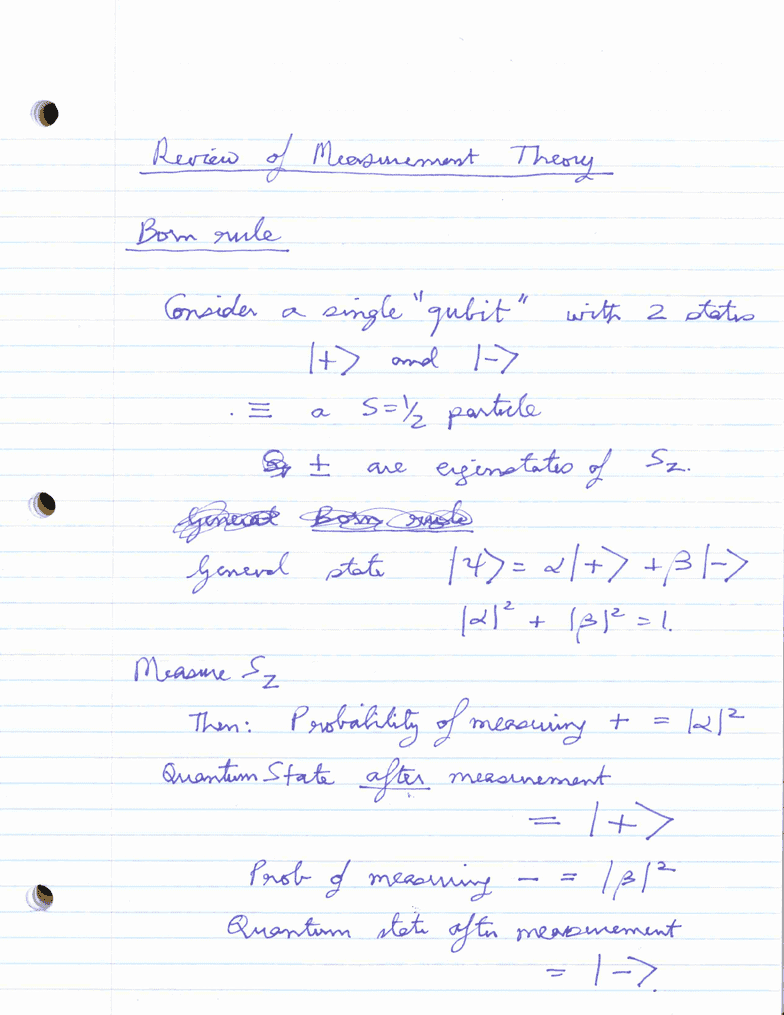 Review of Measurement Theory
Born rule
Consider a single "qubit" with 2 states
|+> and |->
. ≡ a S=1/2 particle
± are eigenstates of Sz.
General Born rule
General state |ψ> = α|+> + β|->
|α|² + |β|² = 1.
Measure Sz
Then: Probability of measuring + = |α|²
Quantum State after measurement
= |+>
Prob of measuring − = |β|²
Quantum state after measurement
= |->.